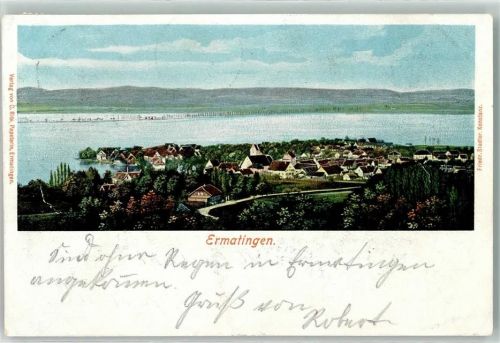 Verlag von O. Itta, Papeterie, Ermatingen.
Friedr. Stadler, Konstanz.
Ermatingen.
Sind ohne Regen in Ermatingen
angekommen.
Gruß von
Robert